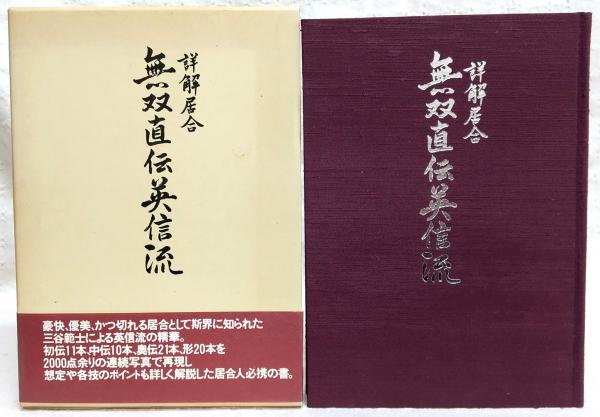 詳解居合
無双直伝英信流
豪快、優美、かつ切れる居合として斯界に知られた
三谷範士による英信流の精華。
初伝11本、中伝10本、奥伝21本、形20本を
2000点余りの連続写真で再現し
想定や各技のポイントも詳しく解説した居合人必携の書。
詳解居合
無双直伝英信流